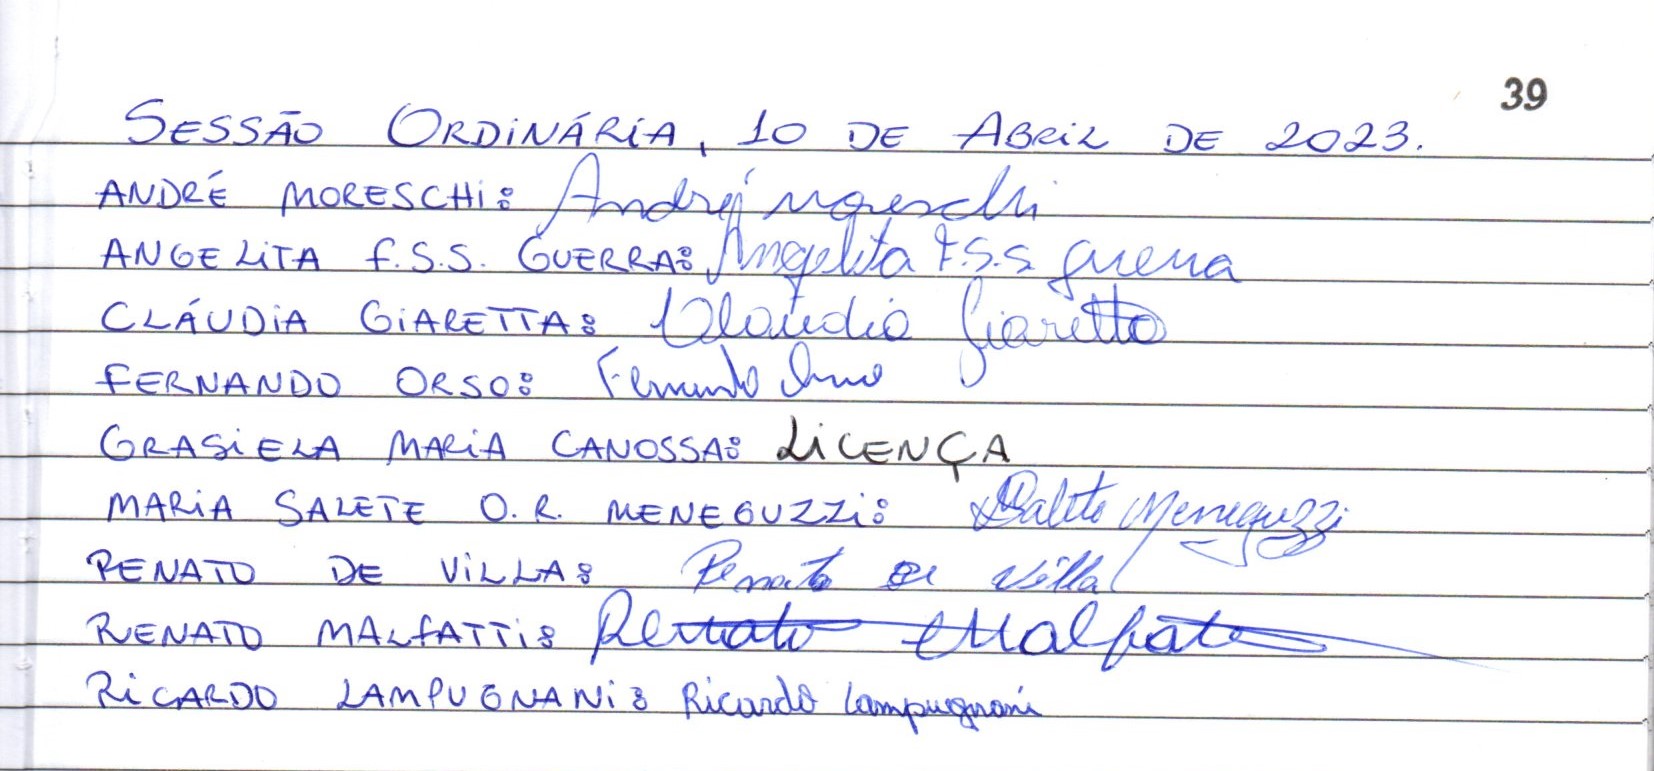 39
SESSÃO ORDINÁRIA, 10 DE ABRIL DE 2023.
ANDRÉ MORESCHI: André Moreschi
ANGELITA F.S.S. GUERRA: Angelita F.S.S Guerra
CLÁUDIA GIARETTA: Claudia Giaretta
FERNANDO ORSO: Fernando Orso
GRASIELA MARIA CANOSSA: LICENÇA
MARIA SALETE O. R. MENEGUZZI: Salete Meneguzzi
RENATO DE VILLA: Renato de Villa
RENATO MALFATTI: Renato Malfatti
RICARDO LAMPUGNANI: Ricardo Lampugnani